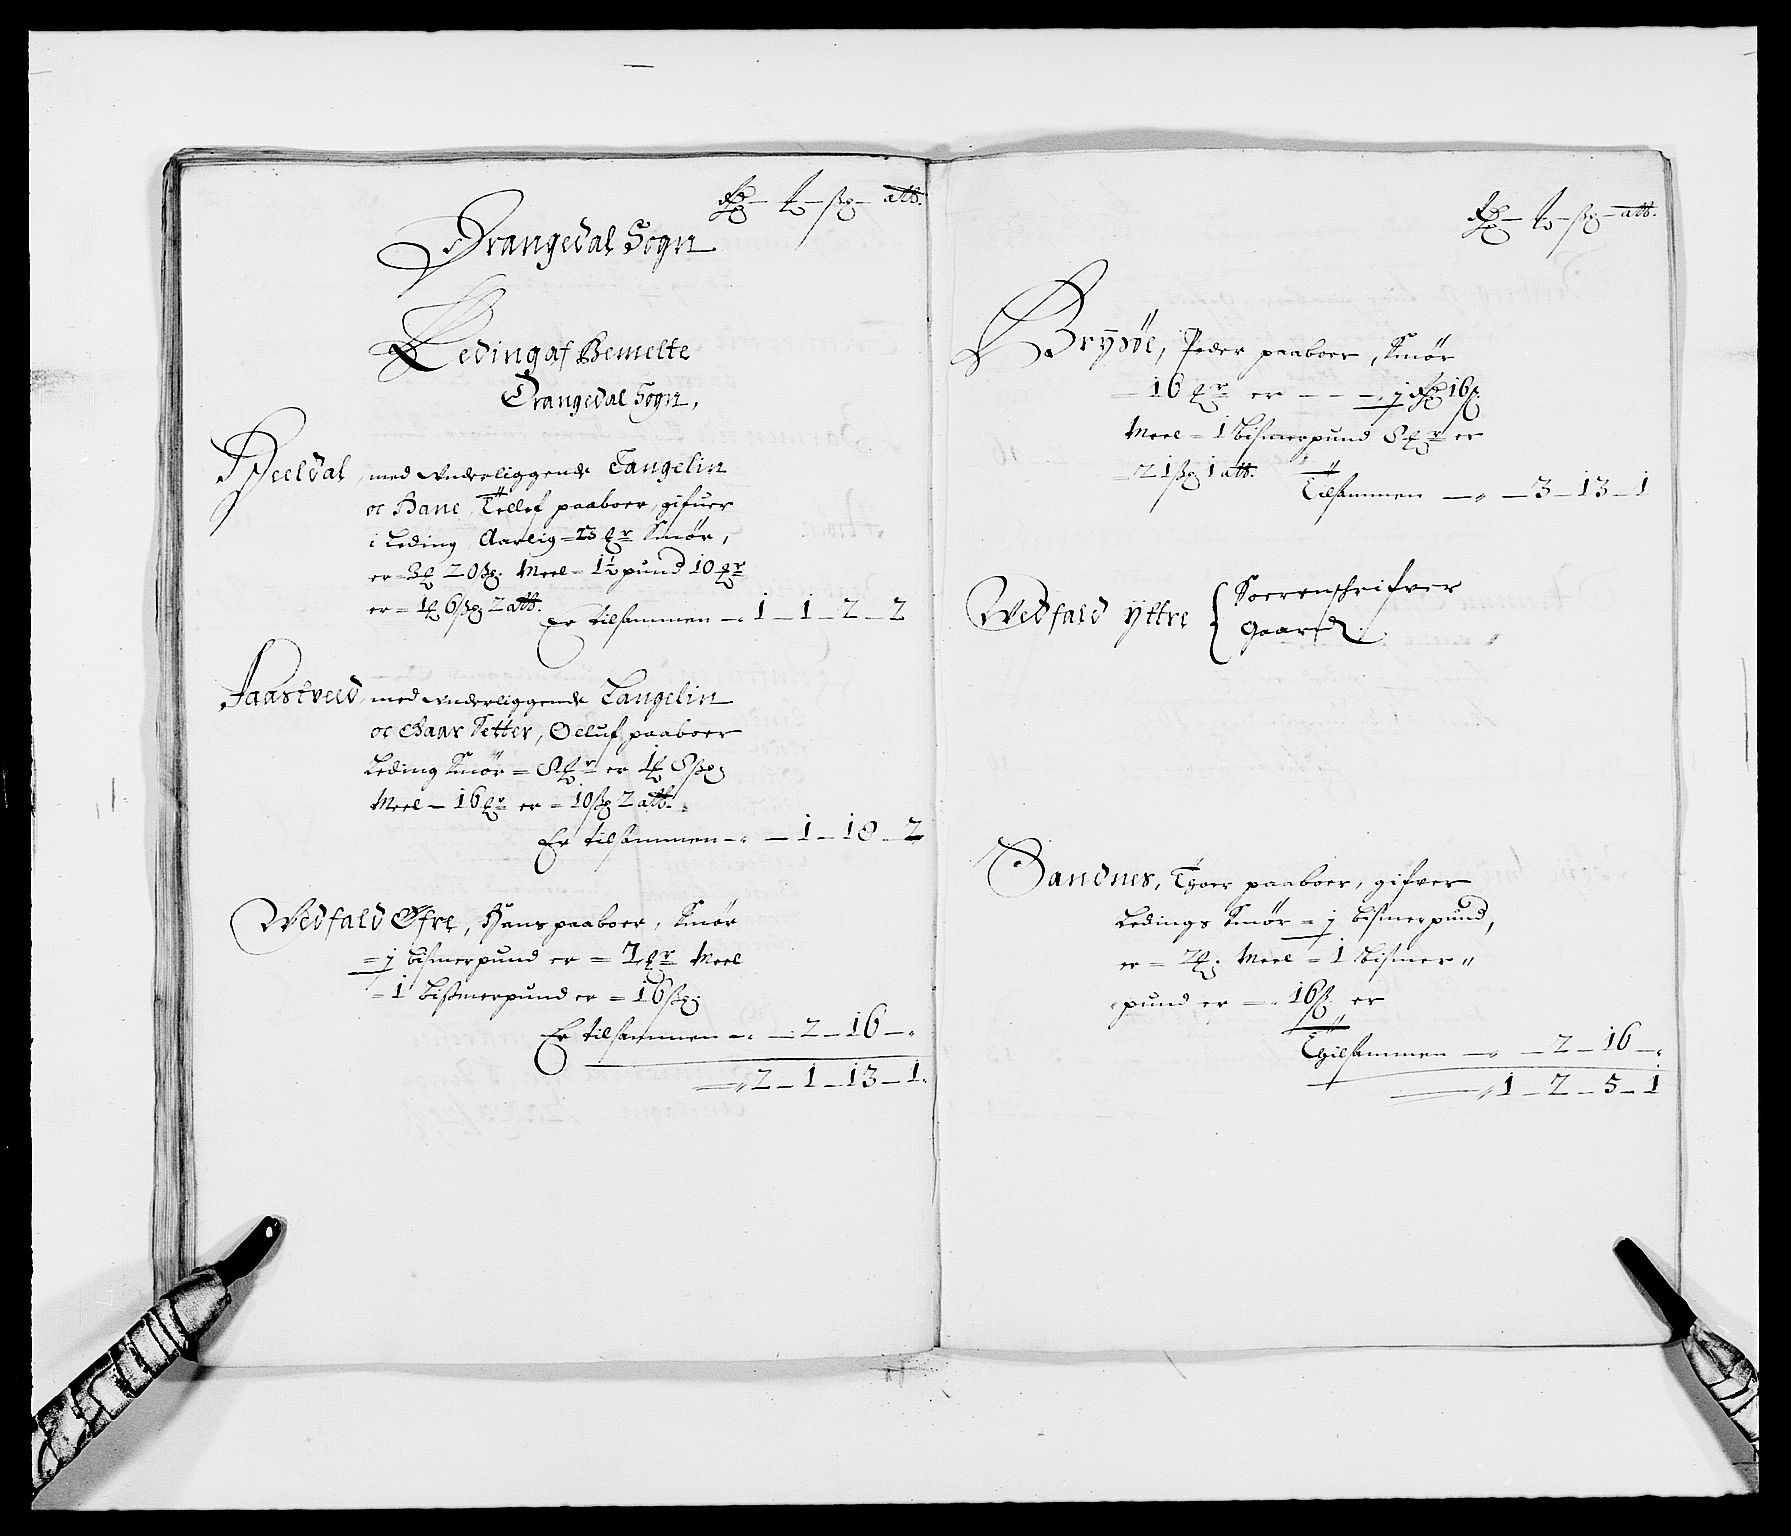 Rdr — ℔ — ß — alb.
Drangedal Sogn
Leding af Bemelte
Drangedal Sogn,
Heeldal, med underliggende Tangelin
oc Bane, Tellef paaboer, gifuer
i Leding Aarlig = 23 mr Smør,
er = 3 ℔ 20 ß. Meel = 1½ pund 10 mr
er = 1 ℔ 6 ß 2 alb.
Er tilsammen — 1 — 1 — 2 — 2
Jaastveed, med underliggende Langelin
oc Setter, Oeluf paaboer
Leding Smør = 8 mr er 1 ℔ 8 ß
Meel — 16 mr er = 10 ß 2 alb.
Er tilsammen — 1 — 18 — 2
Vedfald Øfre, Hans paaboer, Smør
= j bismerpund er = 2 mr Meel
= 1 bismerpund er = 16 ß.
Er tilsammen — 2 — 16 —
2 — 1 — 13 — 1
Rdr — ℔ — ß — alb.
Brysøe, Peder paaboer, Smør
16 mr er — — — j Rdr 16 ß
Meel = 1 bismerpund 8 mr er
21 ß 1 alb.
Tilsammen — 3 — 13 — 1
Vedfald Yttre { Soerenschrifver
Gaard
Sandnes, Thoer paaboer, gifver
Ledings Smør = j bismerpund,
er = 2 ℔. Meel = 1 bismer
pund er — 16 ß. er
Thilsammen — 2 — 16 —
1 — 2 — 5 — 1